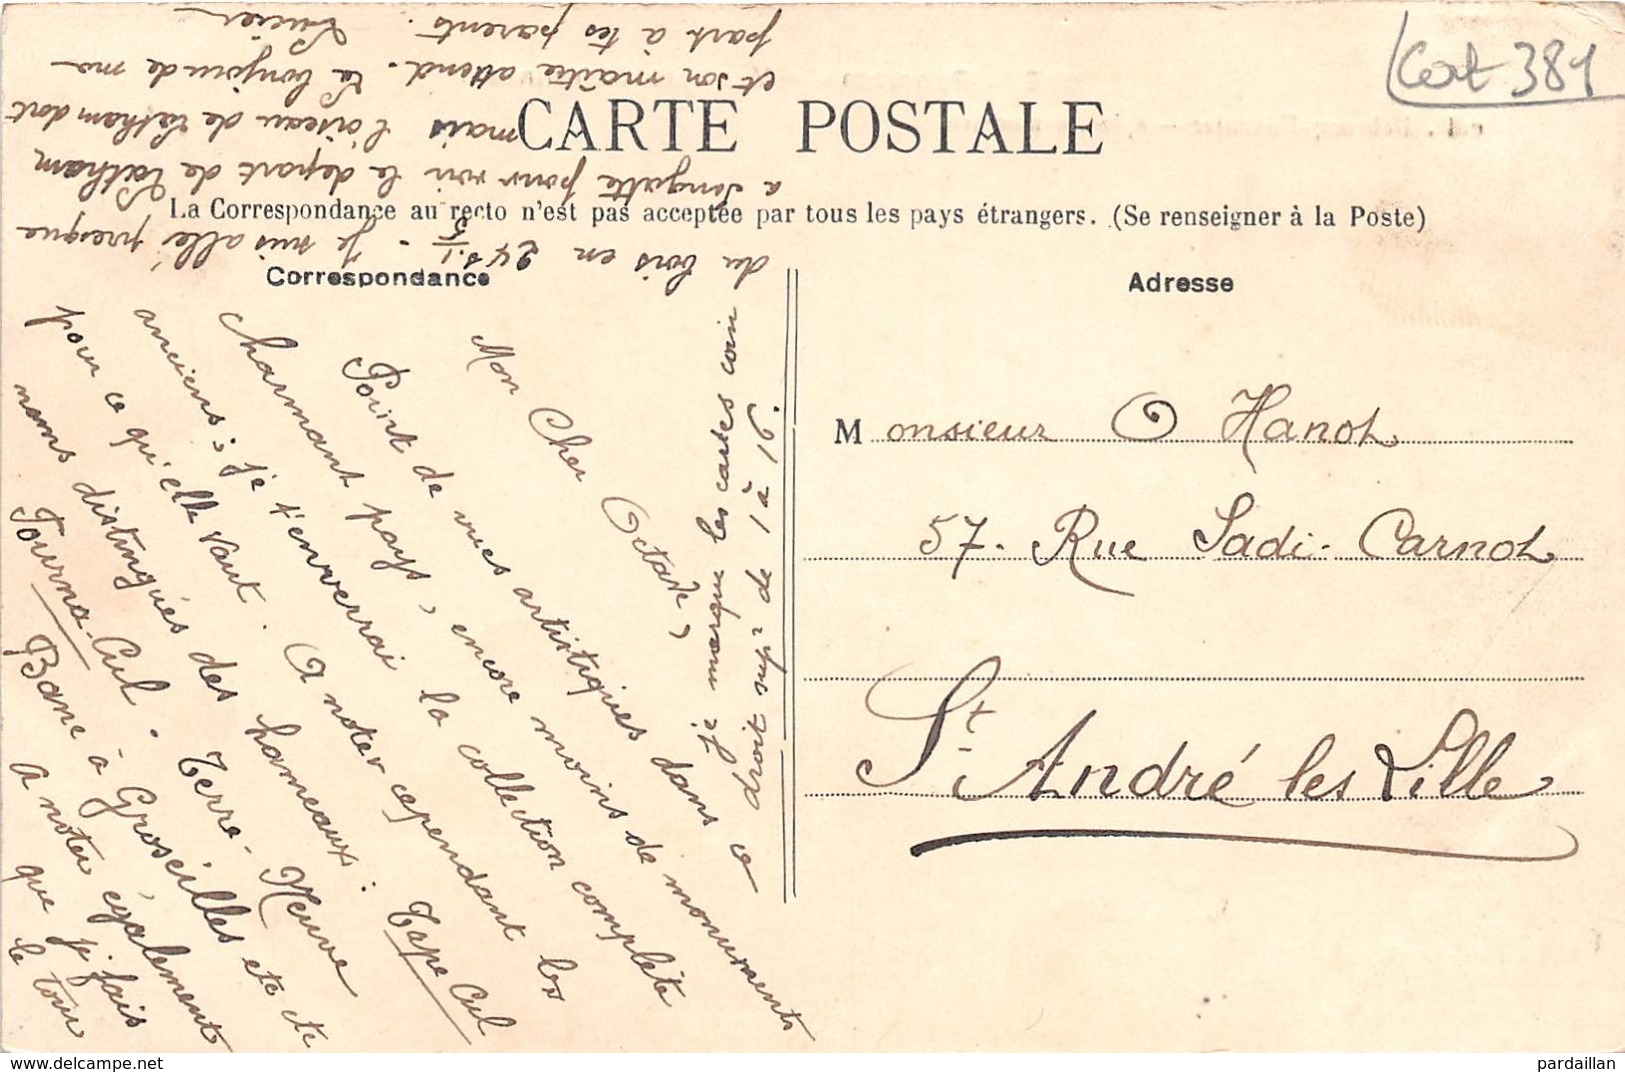 Cat 381
CARTE POSTALE
La Correspondance au recto n'est pas acceptée par tous les pays étrangers. (Se renseigner à la Poste)
Correspondance
Adresse
Monsieur O Hanot
57. Rue Sadi-Carnot
St André les Lille
Mon Cher Octave,
Point de vues artistiques dans ce
charmant pays, encore moins de monuments
anciens ; je t'enverrai la collection complète
pour ce qu'elle vaut. A noter cependant les
noms distingués des hameaux : Tape Cul
Tourna-Cul. Terre-Neuve
Banc à Groseilles etc etc
A noter également
que je fais
le tour
du bois en 24 s. 1/5 - Je suis allé presque
a Sangatte pour voir le départ de Latham
mais l'oiseau de Latham dort
et son maître attend. Le bonjour de ma
part à tes parents.
Lucien
Je marque les cartes coin
droit supr de 1 à 16.
delcampe.net
pardaillan